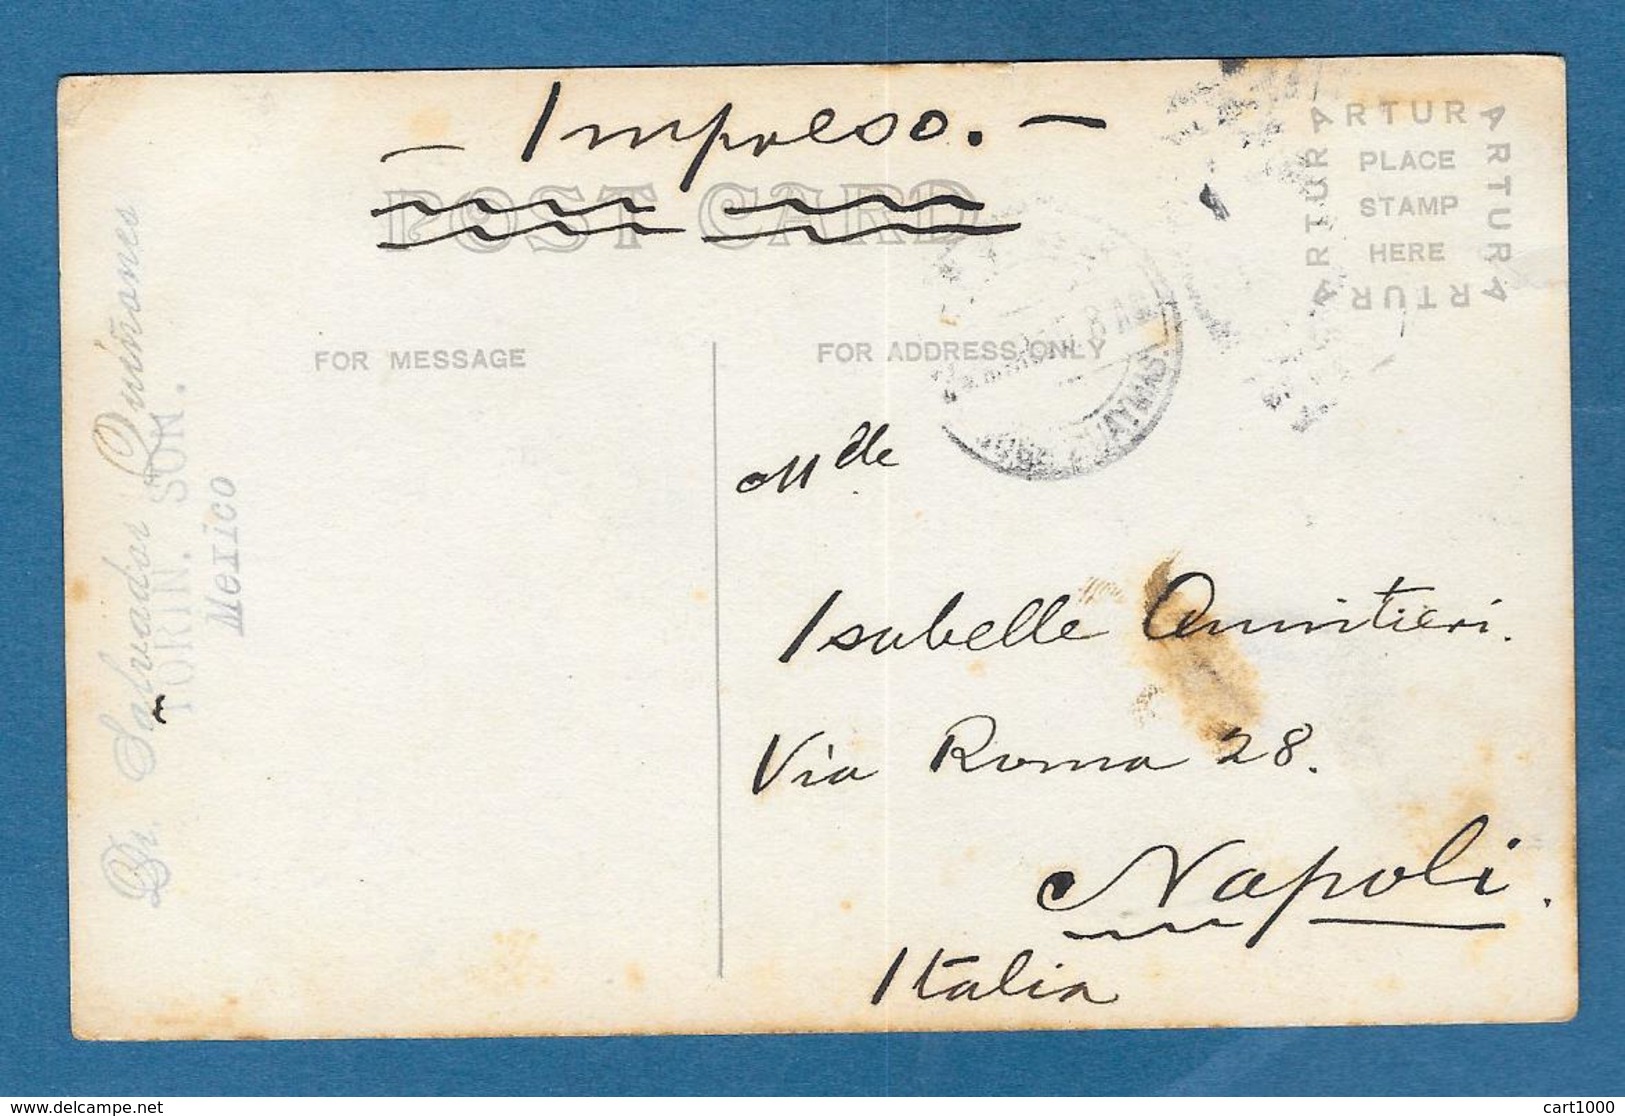 — Impreso. —
POST CARD
ARTURA
ARTURA
ARTURA
ARTURA
PLACE
STAMP
HERE
FOR MESSAGE
FOR ADDRESS ONLY
Dr. Salvador Quiñones
TORIN. SON.
Mexico
GUAYMAS
Mlle
Isabelle
Via Roma 28.
Napoli.
Italia
www.delcampe.net
cart1000